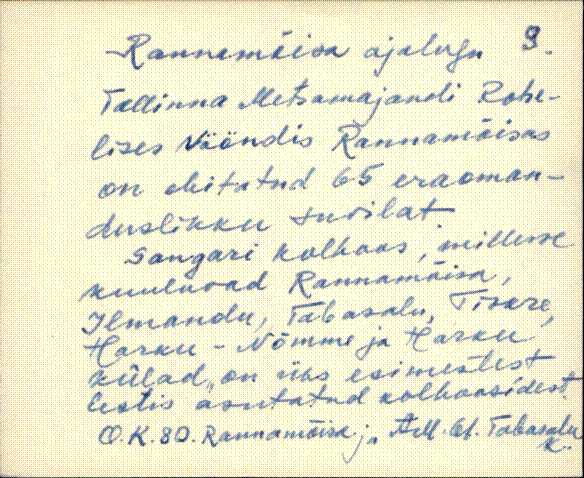 Rannamõisa ajalugu 9.
Tallinna Metsamajandi Rohe-
lises Vööndis Rannamõisas
on ehitatud 65 eraoman-
duslikku suvilat
Sangari kolhoos, millesse
kuuluvad Rannamõisa,
Ilmandu, Tabasalu, Tiskre,
Harku - Nõmme ja Harku
külad, on üks esimestest
Eestis asutatud kolhoosidest.
O.K. 80. Rannamõisa j. Tabasalu
k.